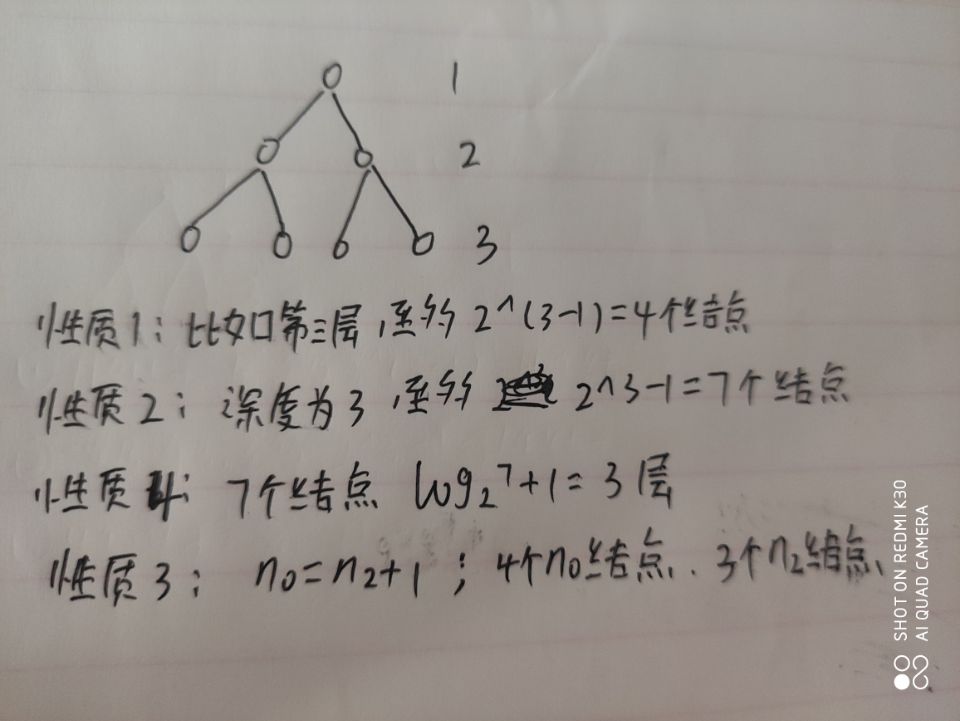 1
2
3
性质1：比如第三层，至多2^(3-1)=4个结点
性质2：深度为3，至多2^3-1=7个结点
性质4：7个结点 log₂7+1=3层
性质3：n₀=n₂+1；4个n₀结点、3个n₂结点
SHOT ON REDMI K30
AI QUAD CAMERA